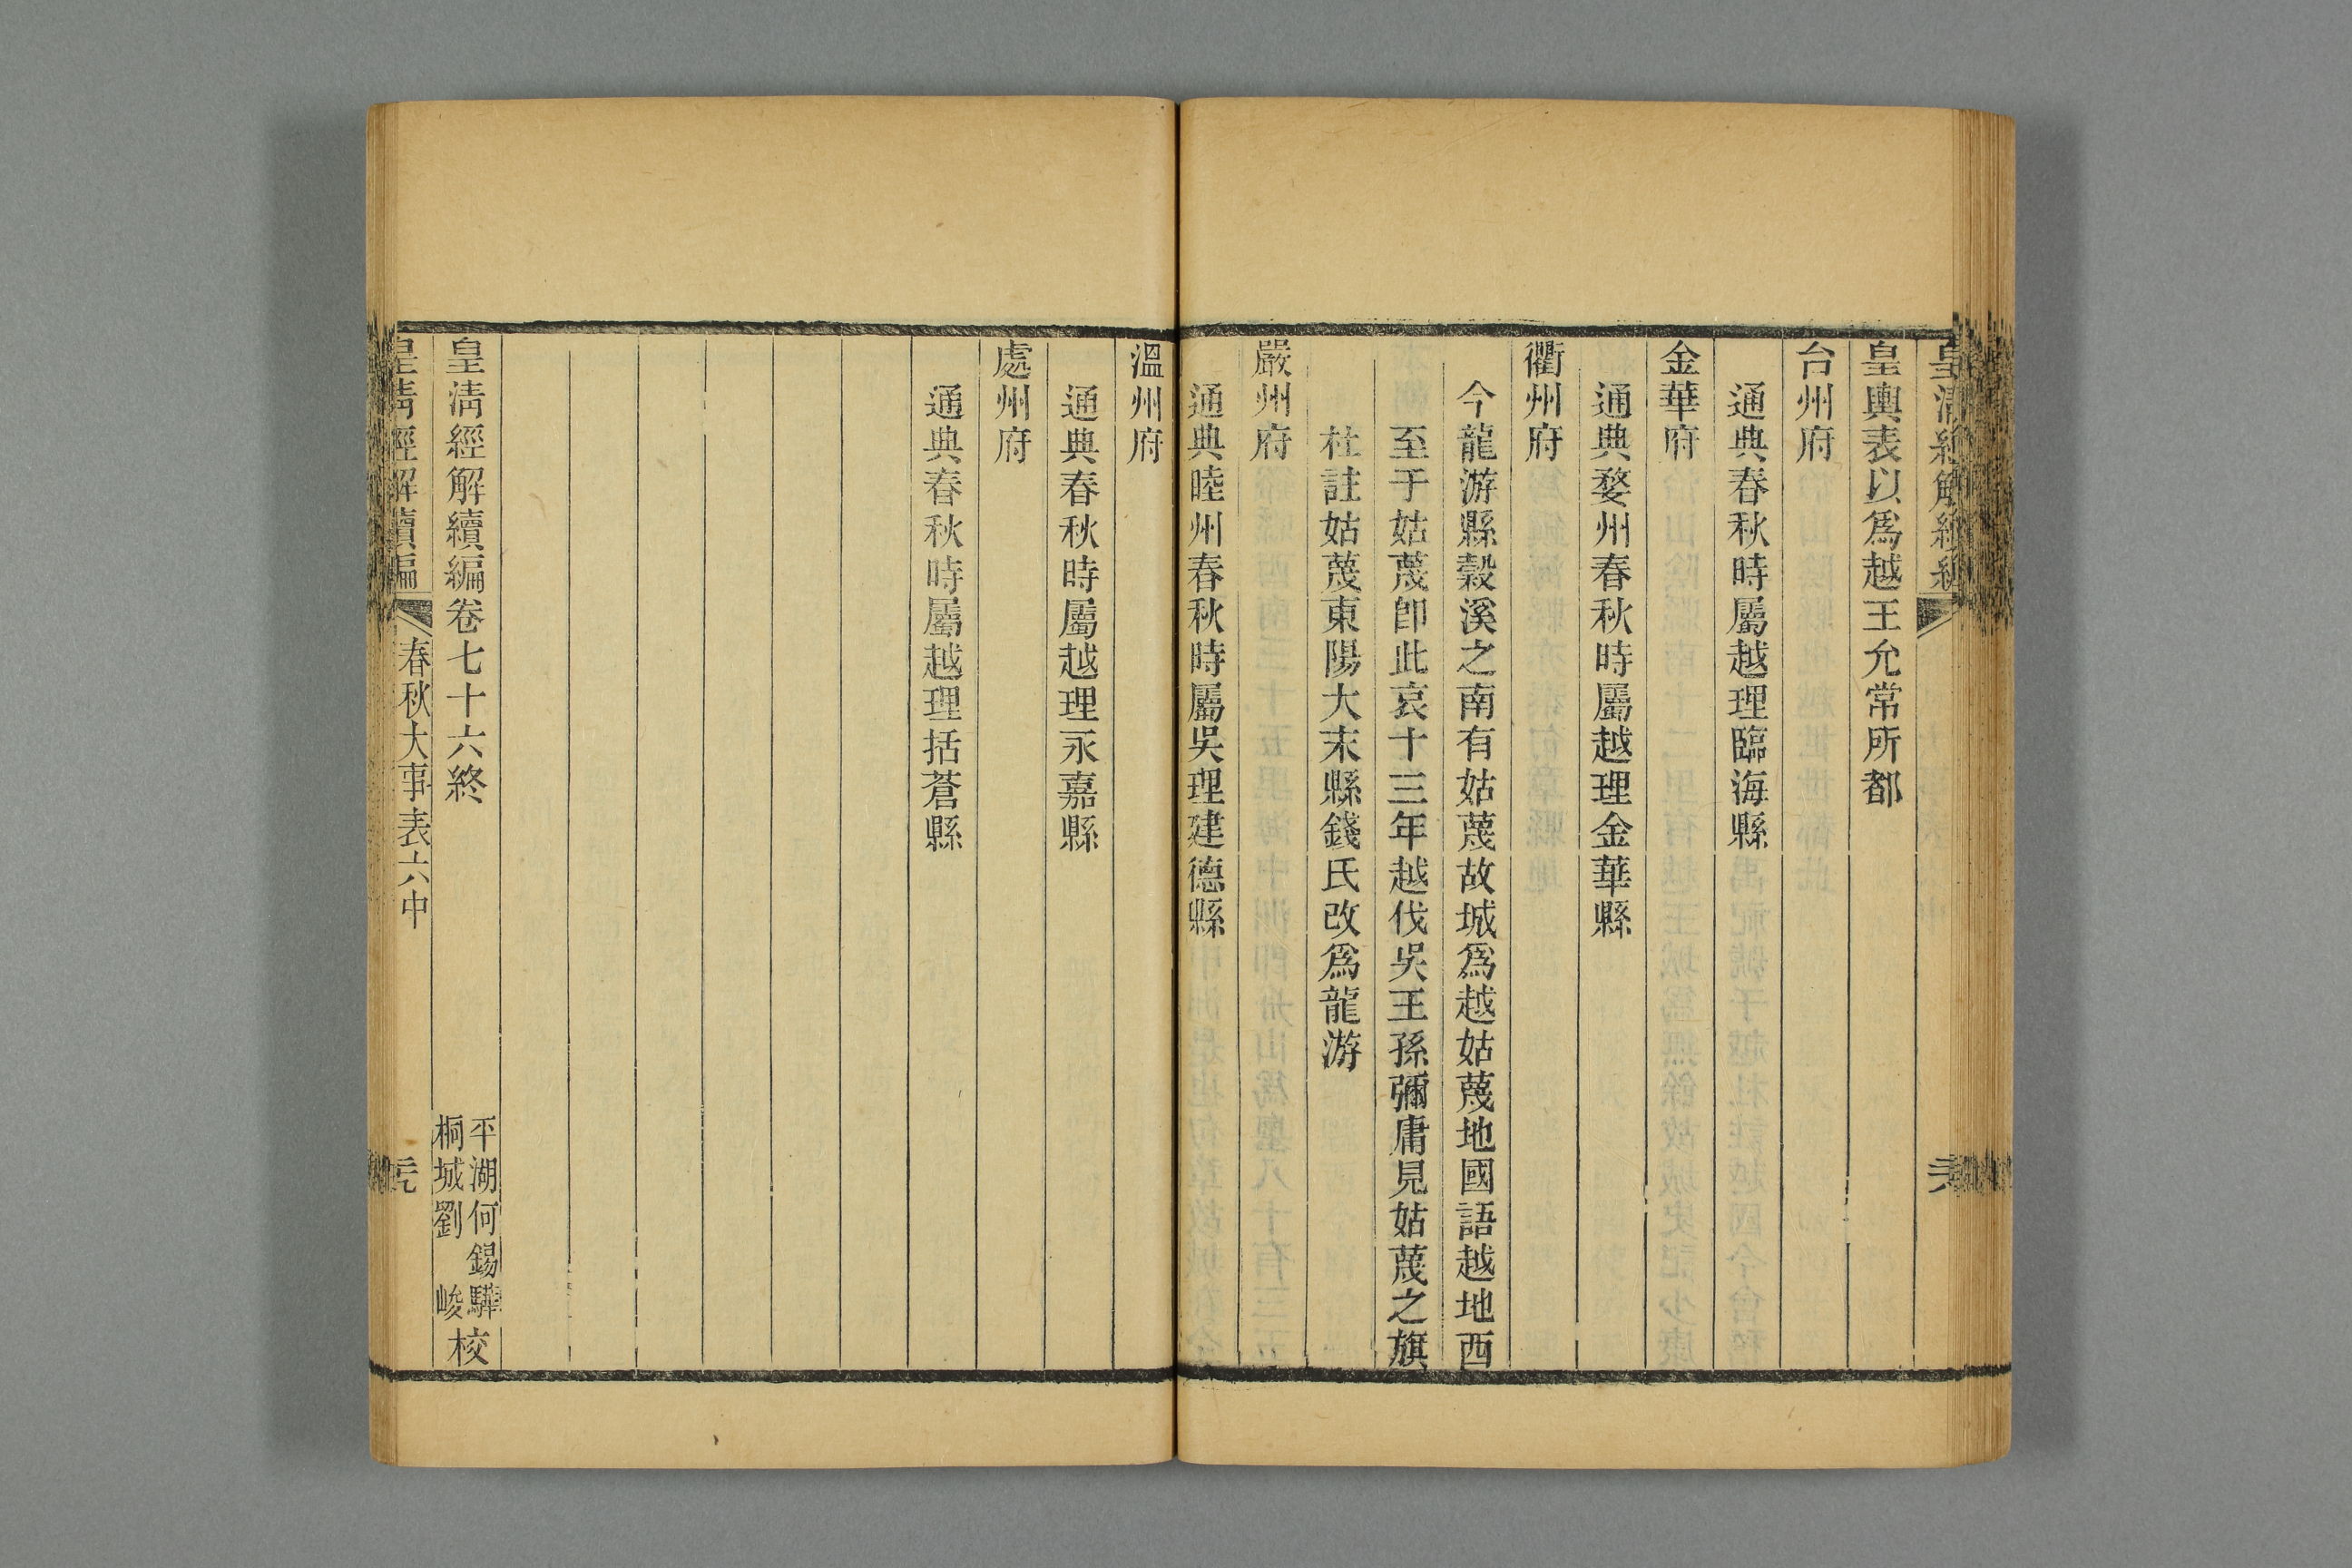 皇輿表以爲越王允常所都
台州府
通典春秋時屬越理臨海縣
金華府
通典婺州春秋時屬越理金華縣
衢州府
今龍游縣縠溪之南有姑蔑故城爲越姑蔑地國語越地西
至于姑蔑卽此哀十三年越伐吳王孫彌庸見姑蔑之旗
杜註姑蔑東陽大末縣錢氏改爲龍游
嚴州府
通典睦州春秋時屬吳理建德縣
溫州府
通典春秋時屬越理永嘉縣
處州府
通典春秋時屬越理括蒼縣
皇淸經解續編卷七十六終
平湖何錫驊
桐城劉峻
校
皇淸經解續編
春秋大事表六中